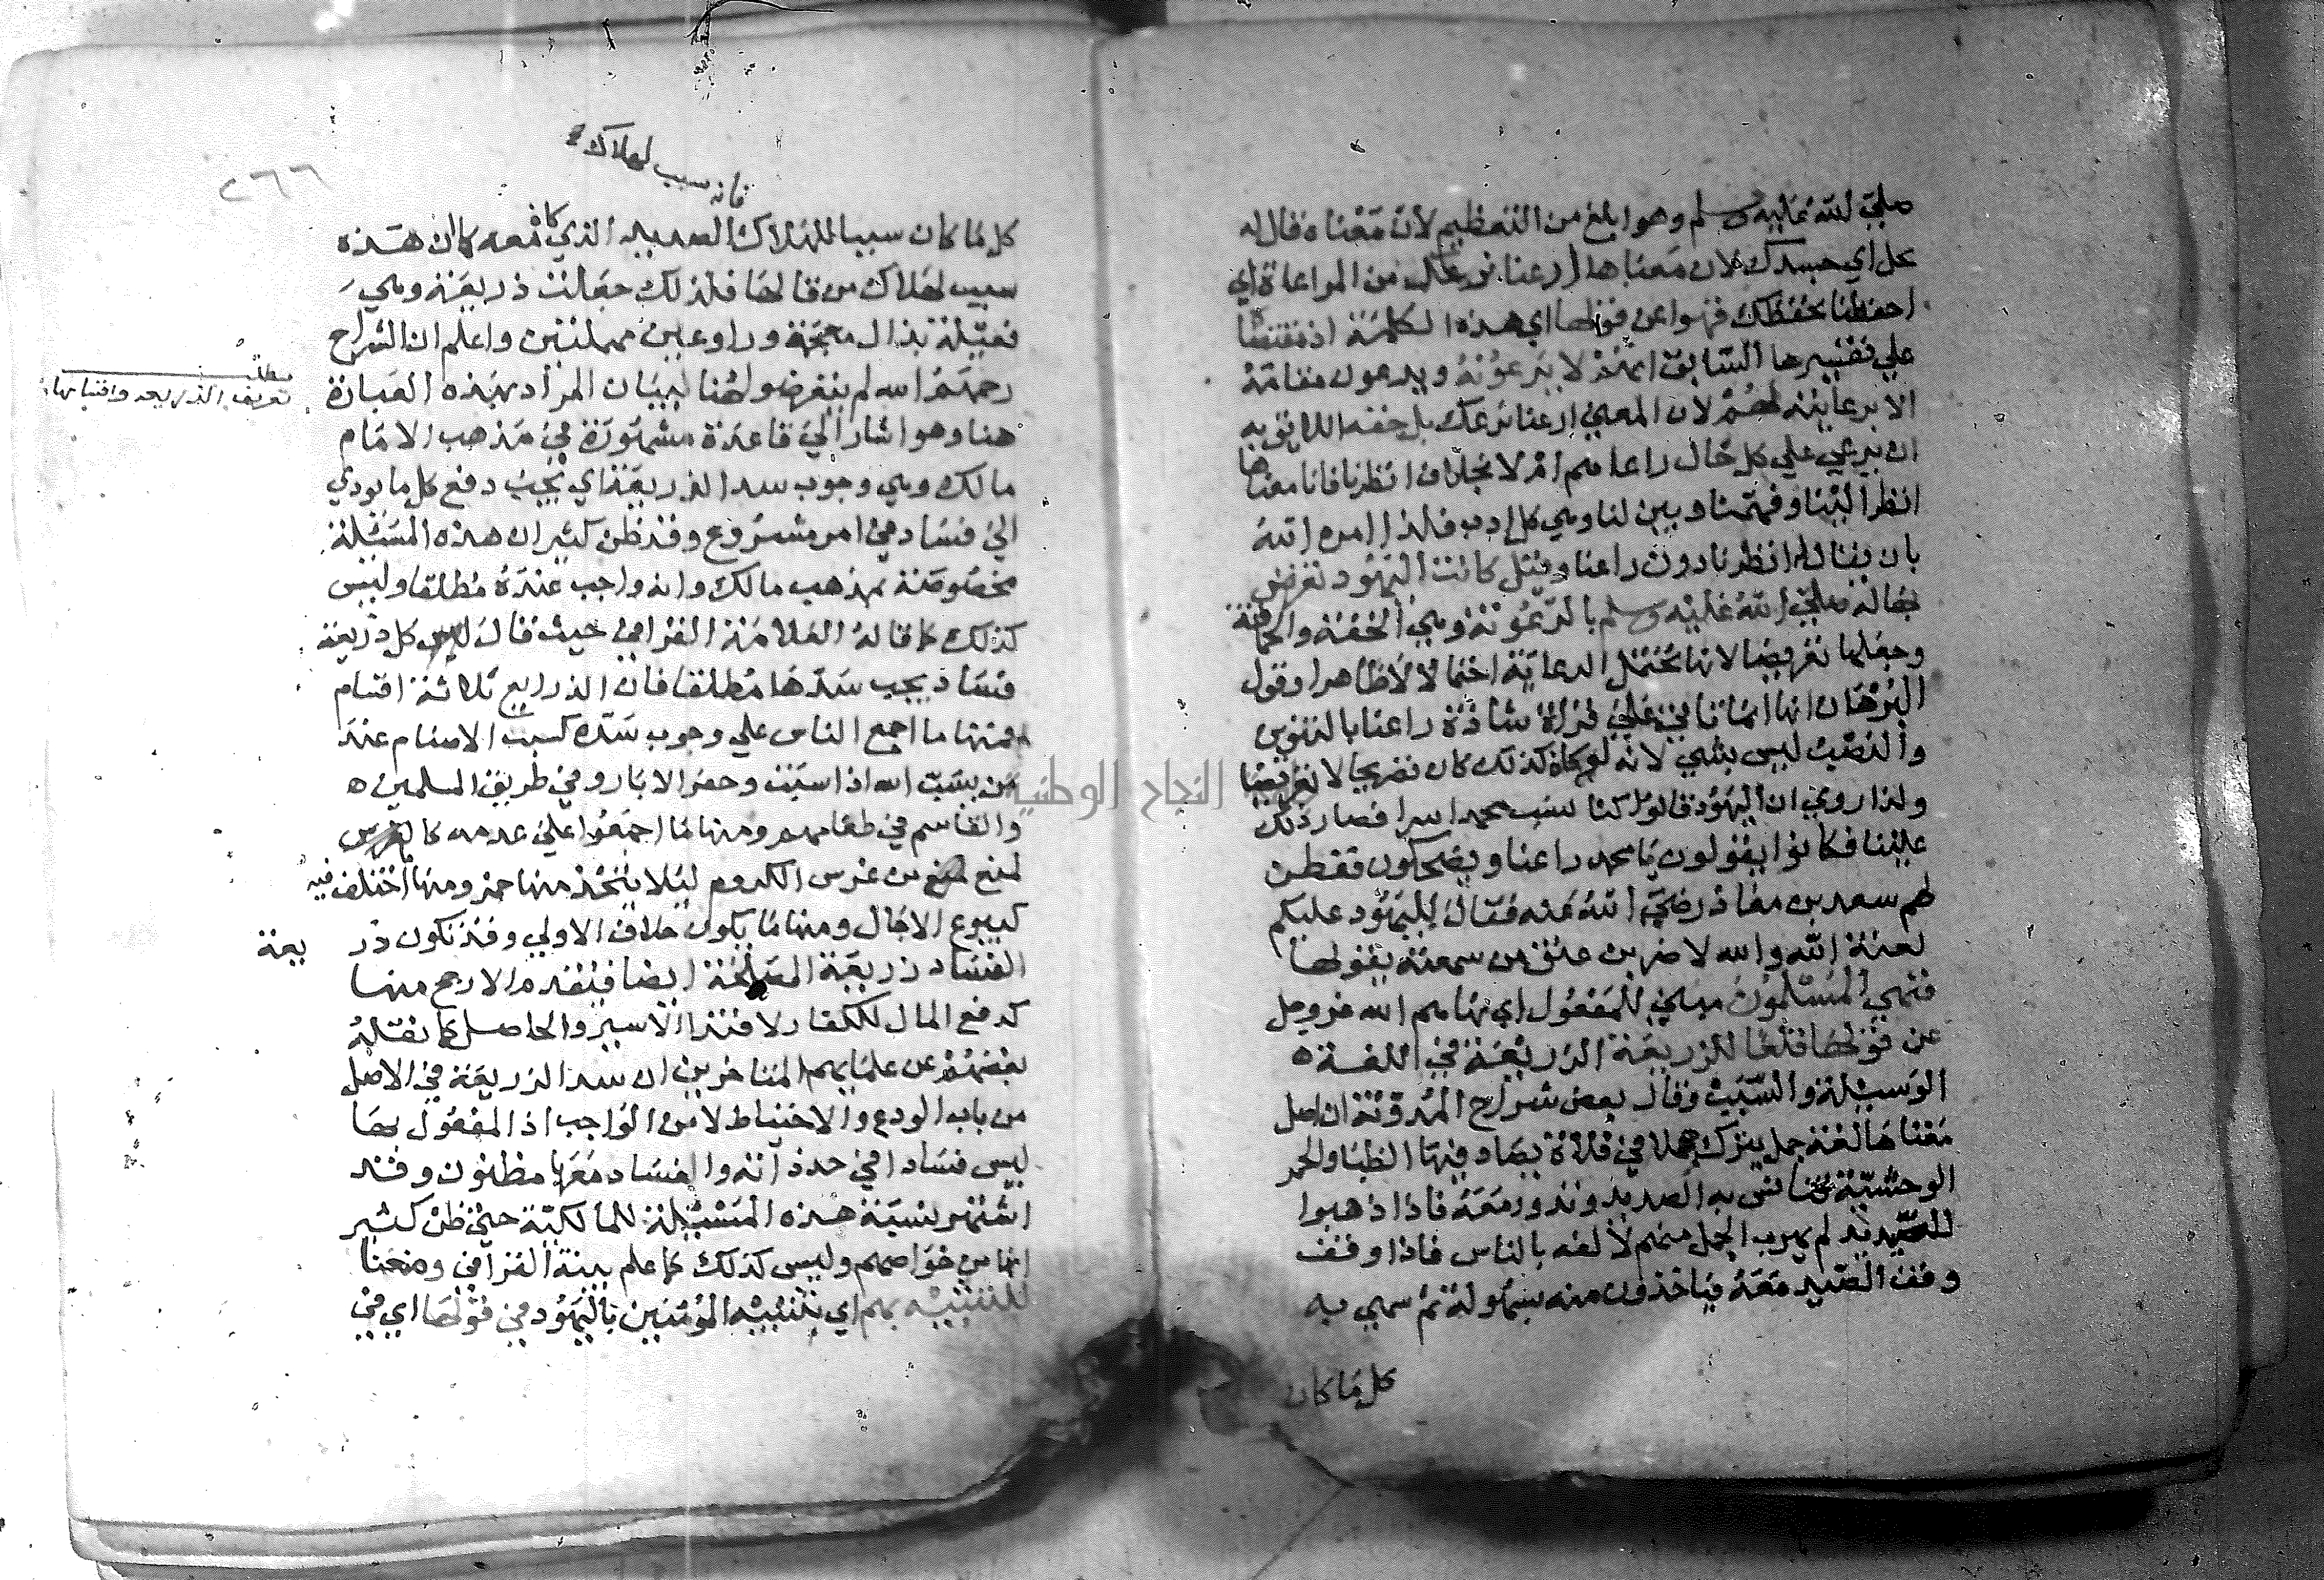 صلي الله عليه وسلم وهو ابلغ من التعظيم لان معناه فقال له
بكل اي جسدك لان معناها ارعنا نرعاك من المراعاة اي
احفظنا نحفظك فنهوا عن قولها اي هذه الكلمة اذ مقتضا
علي تفسيرها السابق انهم لا يرعونه ويدعون مقامه
الا برعايته لهم لان المعني ارعنا نرعك بل حقه اللايق به
ان يرعي علي كل حال راعاهم ام لا بخلاف انظرنا فانا معناها
انظر الينا وفهمنا وبين لنا وهي كل ادب فلذا امره الله
بان يقال انظرنا دون راعنا وقيل كانت اليهود تعرض
بها له صلي الله عليه وسلم بالرعونة وهي الخفة والحماقة
وجعلها تعريضا لانها تحتمل الرعاية احتمالا لا ظاهرا وقول
البرهان انها انما تاتي علي قراة شاذة راعنا بالتنوين
والنصب ليس بشي لانه لو كان كذلك كان تصريحا لا تعريضا
ولذا روي ان اليهود قالوا كنا نسب محمدا سرا فصار ذلك
علينا فكانوا يقولون يا محمد راعنا ويضحكون ففطن
لهم سعد بن معاذ رضي الله عنه فقال لليهود عليكم
لعنة الله والله لا ضربن عنق من سمعته يقولها
فنهي المسلمون مبني للمفعول اي نهاهم الله عز وجل
عن قولها قطعا للذريعة الذريعة في اللغة ه
الوسيلة والسبب وقال بعض شراح المدونة ان اصل
معناها لغة جمل يترك هملا في فلاة يصاد فيها الظبا والحمر
الوحشية فيانس به الصيد ويدور معه فاذا ذهبوا
للصيد لم يهرب الجمل منهم لالفه بالناس فاذا وقف
وقف الصيد معه فياخذون منه بسهولة ثم سمي به
كل ما كان
٢٦٦
فانه سبب لهلاك
كل ما كان سببا لهلاك الصيد الذي كان معه كما ان هذه
سبب لهلاك من قالها فلذلك جعلت ذريعة وهي
فعيلة بذال معجمة ورا وعين مهملتين واعلم ان الشراح
رحمهم الله لم يتعرضوا هنا لبيان المراد بهذه العبارة
هنا وهو اشار الي قاعدة مشهورة في مذهب الامام
مالك وهي وجوب سد الذريعة اي يجب دفع كل ما يودي
الي فساد في امر مشروع وقد ظن كثير ان هذه المسئلة
مخصوصة بمذهب مالك وانه واجب عنده مطلقا وليس
كذلك كما قاله العلامة القرافي حيث قال ليس كل ذريعة
فساد يجب سدها مطلقا فان الذرايع ثلاثة اقسام
فمنها ما اجمع الناس علي وجوب سده كسب الاصنام عند
من يسب الله اذا سبت وحفر الابار في طريق المسلمين ه
والقا سم في طعامهم ومنها ما اجمعوا علي عدمه كالغرس
لمنع من غرس الكروم ليلا يتخذ منها خمر ومنها اختلف فيه
كبيوع الاجال ومنها ما يكون خلاف الاولي وقد تكون ذر يعة
الفساد ذريعة المصلحة ايضا فيقدم الارجح منها
كدفع المال للكفار لافتدا الاسير والحاصل كما نقله
بعضهم عن علمايهم المتاخرين ان سد الذريعة في الاصل
من باب الورع والاحتياط لا من الواجب اذ المفعول بها
ليس فسادا في حد ذاته والفساد معها مظنون وقد
اشتهر نسبة هذه المسئلة للمالكية حتي ظن كثير
انها من خواصهم وليس كذلك كما علم بينه القرافي ومنعنا
للتشبيه بهم اي بتشبيه المؤمنين باليهود في قولها اي في
مطلب
تعريف الذريعة واقسامها
النجاح الوطنية